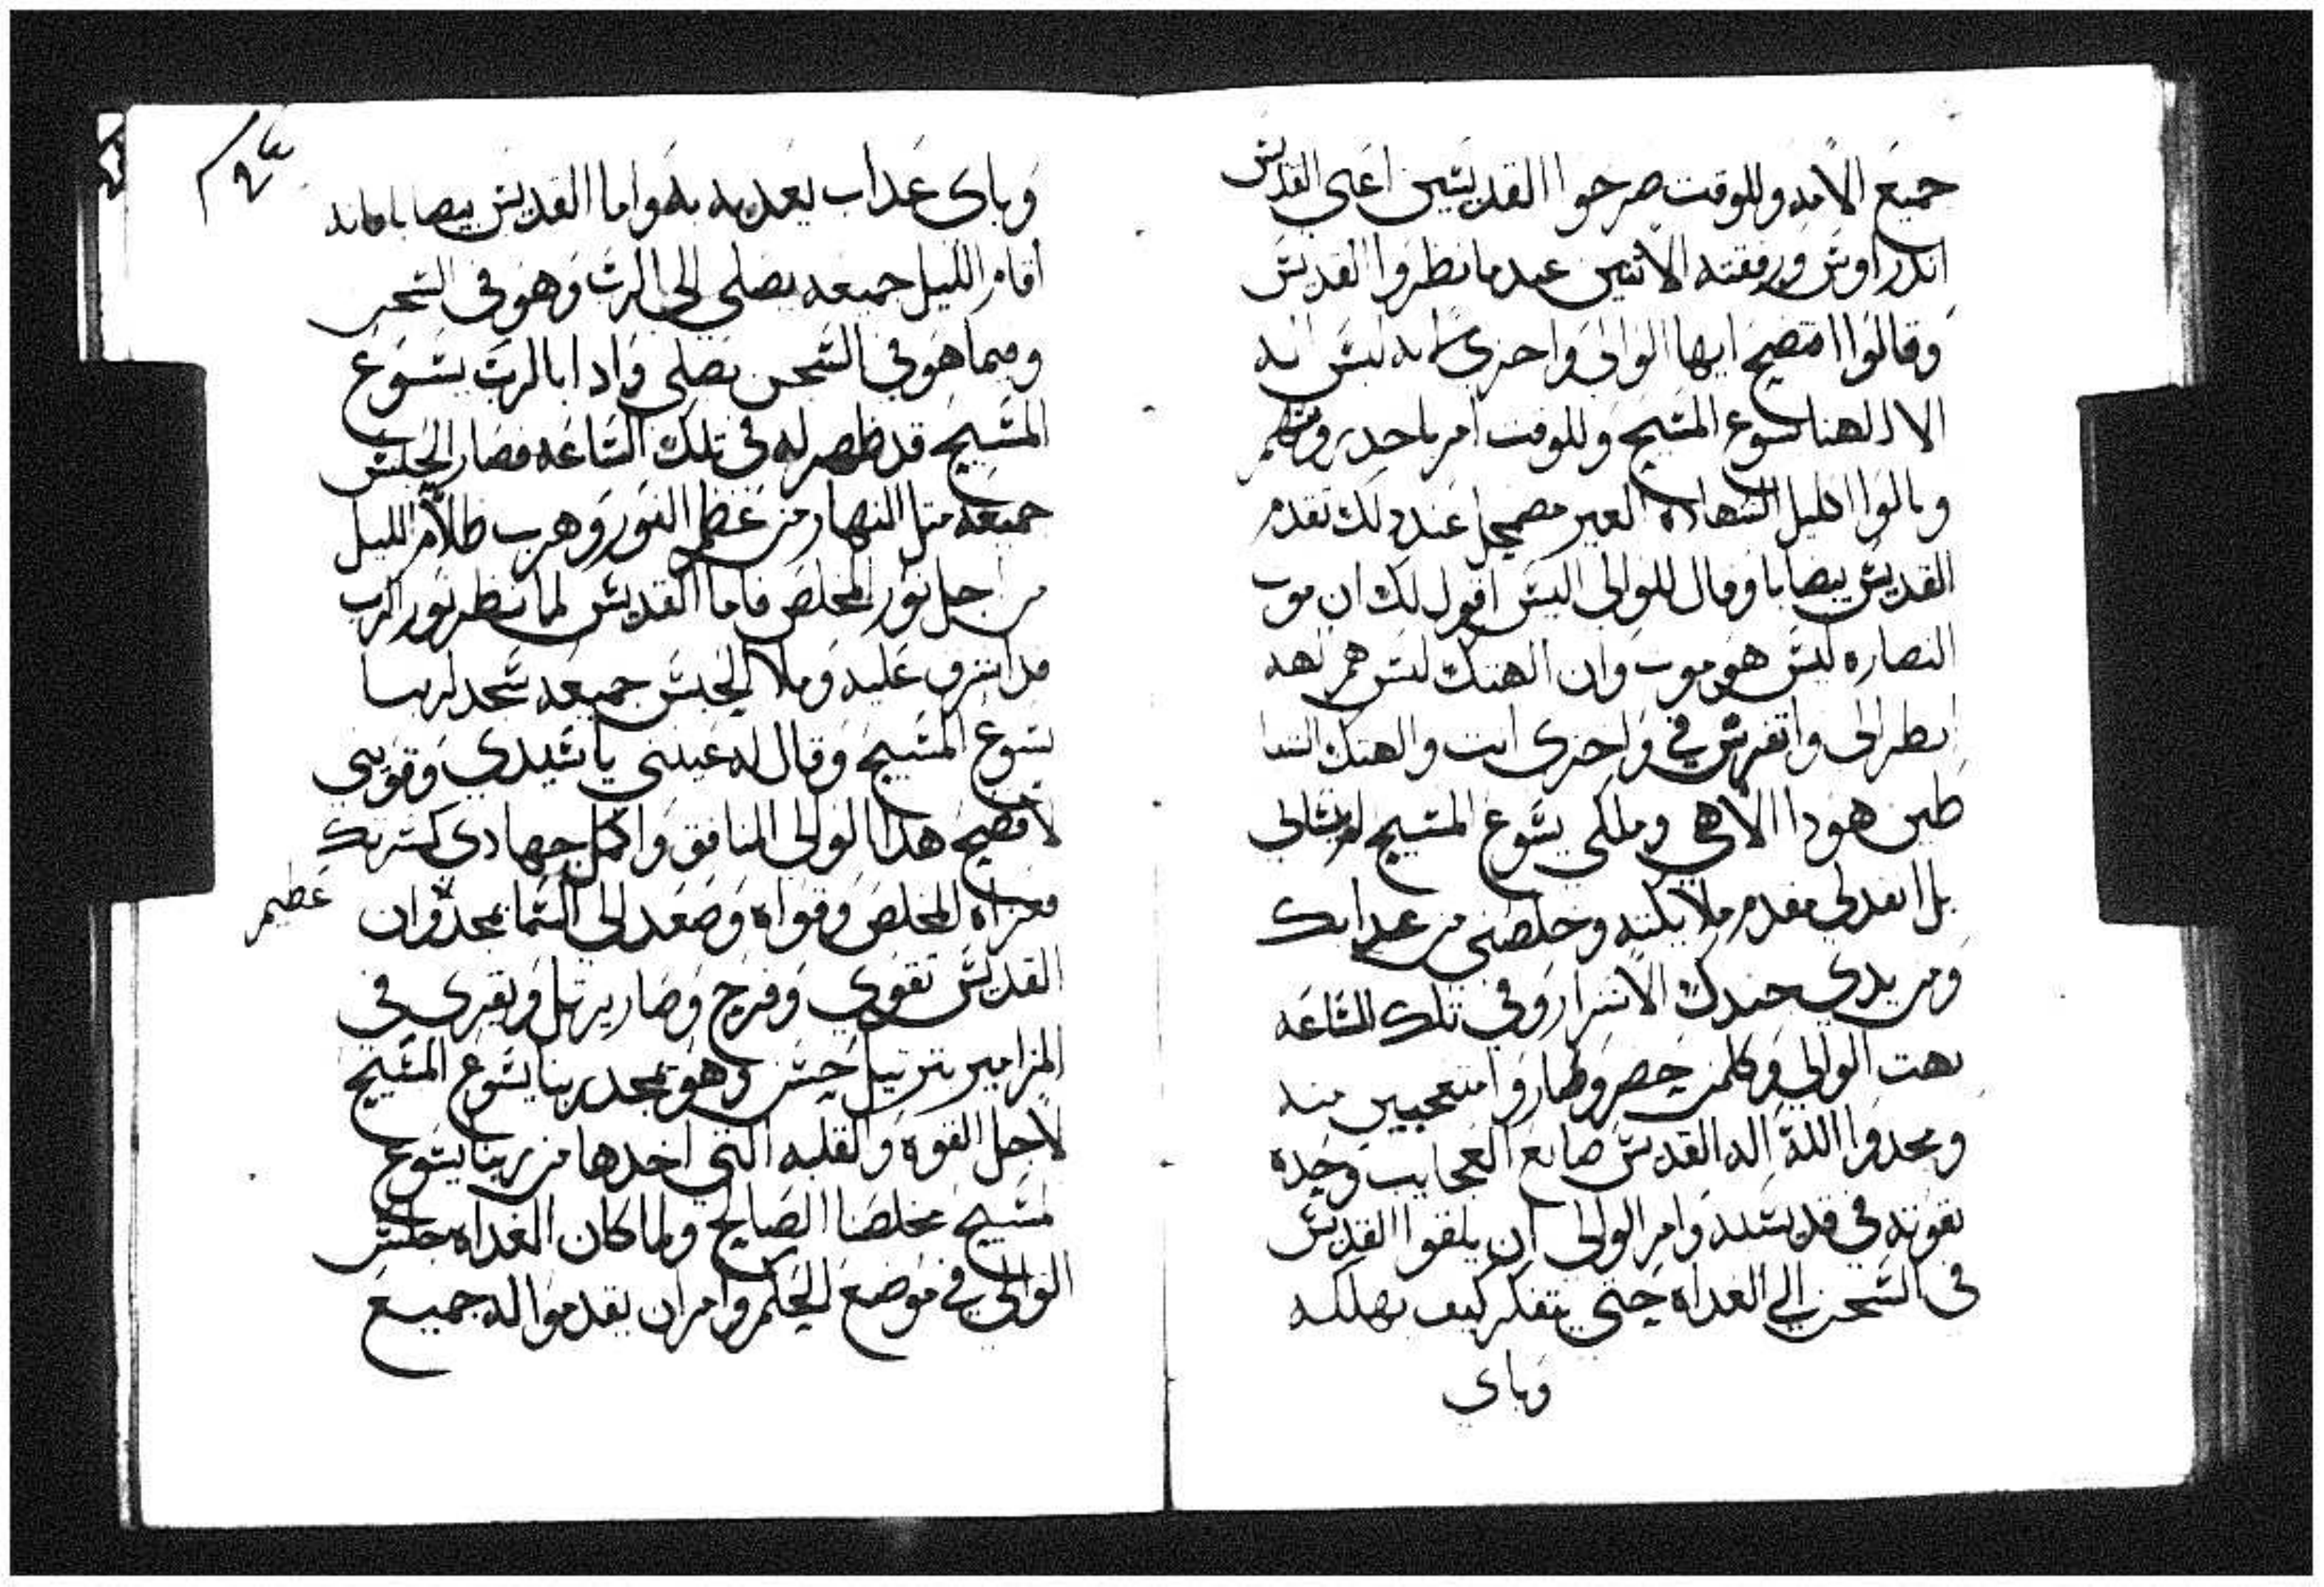 جميع الامه وللوقت صرخوا القديسين اعني القديس
اندراوس ورفقته الاتنين عندما نظروا القديس
وقالوا افتضح ايها الوالي واخزي لانه ليس اله
الا الاهنا يسوع المسيح وللوقت امر باخد روسهم
ونالوا اكليل الشهاده الغير مضمحل عند دلك تقدم
القديس بيصابا وقال للوالي اليس اقول لك ان موت
النصاره ليس هو موت وان الهتك ليس هم الهه
انظر الي واتفرس في واخزي انت والهتك الشيا
طين هودا الاهي وملكي يسوع المسيح لم ينساني
بل انفد لي مقدم ملايكته وخلصني من عدابك
ومن يدي جندك الاشرار وفي تلك الساعه
بهت الوالي وكلمن حضر وصاروا متعجبين منه
ومجدوا الله اله القديس صانع العجايب وحده
بقوته في قديسيه وامر الوالي ان يلقوا القديس
في السجن الي الغداه حتي يتفكر كيف يهلكه
وباي
وباي عداب يعدبه به واما القديس بيصابا فانه
اقام الليل جميعه يصلي الي الرب وهو في السجن
وبينما هو في السجن يصلي وادا بالرب يسوع
المسيح قد ظهر له في تلك الساعه فصار الحبس
جميعه متل النهار من عظم النور وهرب ظلام الليل
من اجل نور المخلص فاما القديس لما نظر نور الرب
قد اشرق عليه وملا الحبس جميعه سجد لربنا
يسوع المسيح وقال له عينني يا سيدي وقويني
لافضح هدا الوالي المنافق واكمل جهادي كمسرتك
فعزاه المخلص وقواه وصعد الي السما بمجد وان
عظيم
القديس تقوي وفرح وصار يرتل ويقري في
المزامير بترتيل حسن وهو يمجد ربنا يسوع المسيح
لاجل القوه والغلبه التي اخدها من ربنا يسوع
لمسيح مخلصنا الصالح ولما كان الغداه جلس
الوالي في موضع الحكم وامر ان يقدموا اله جميع